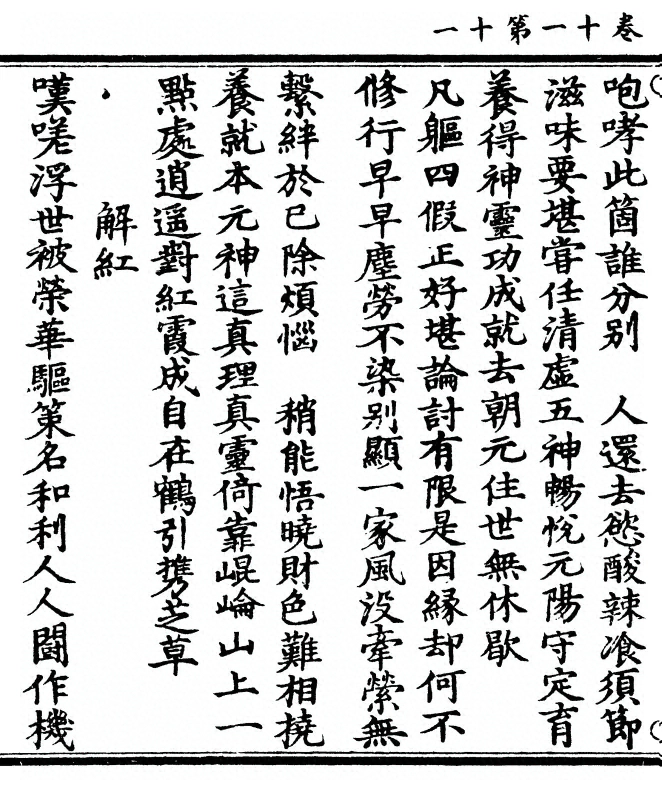 卷十一第十一
咆哮此箇誰分別　人還去慾酸辣飡須節
滋味要堪嘗任清虛五神暢悅元陽守定育
養得神靈功成就去朝元住世無休歇
凡軀四假正好堪論討有限是因緣却何不
修行早早塵勞不染别顯一家風没牽縈無
繫絆於已除煩惱　稍能悟曉財色難相撓
養就本元神這真理真靈倚靠崐崘山上一
點處逍遥對紅霞成自在鶴引携芝草
解紅
嘆嗟浮世被榮華驅策名和利人人鬪作機